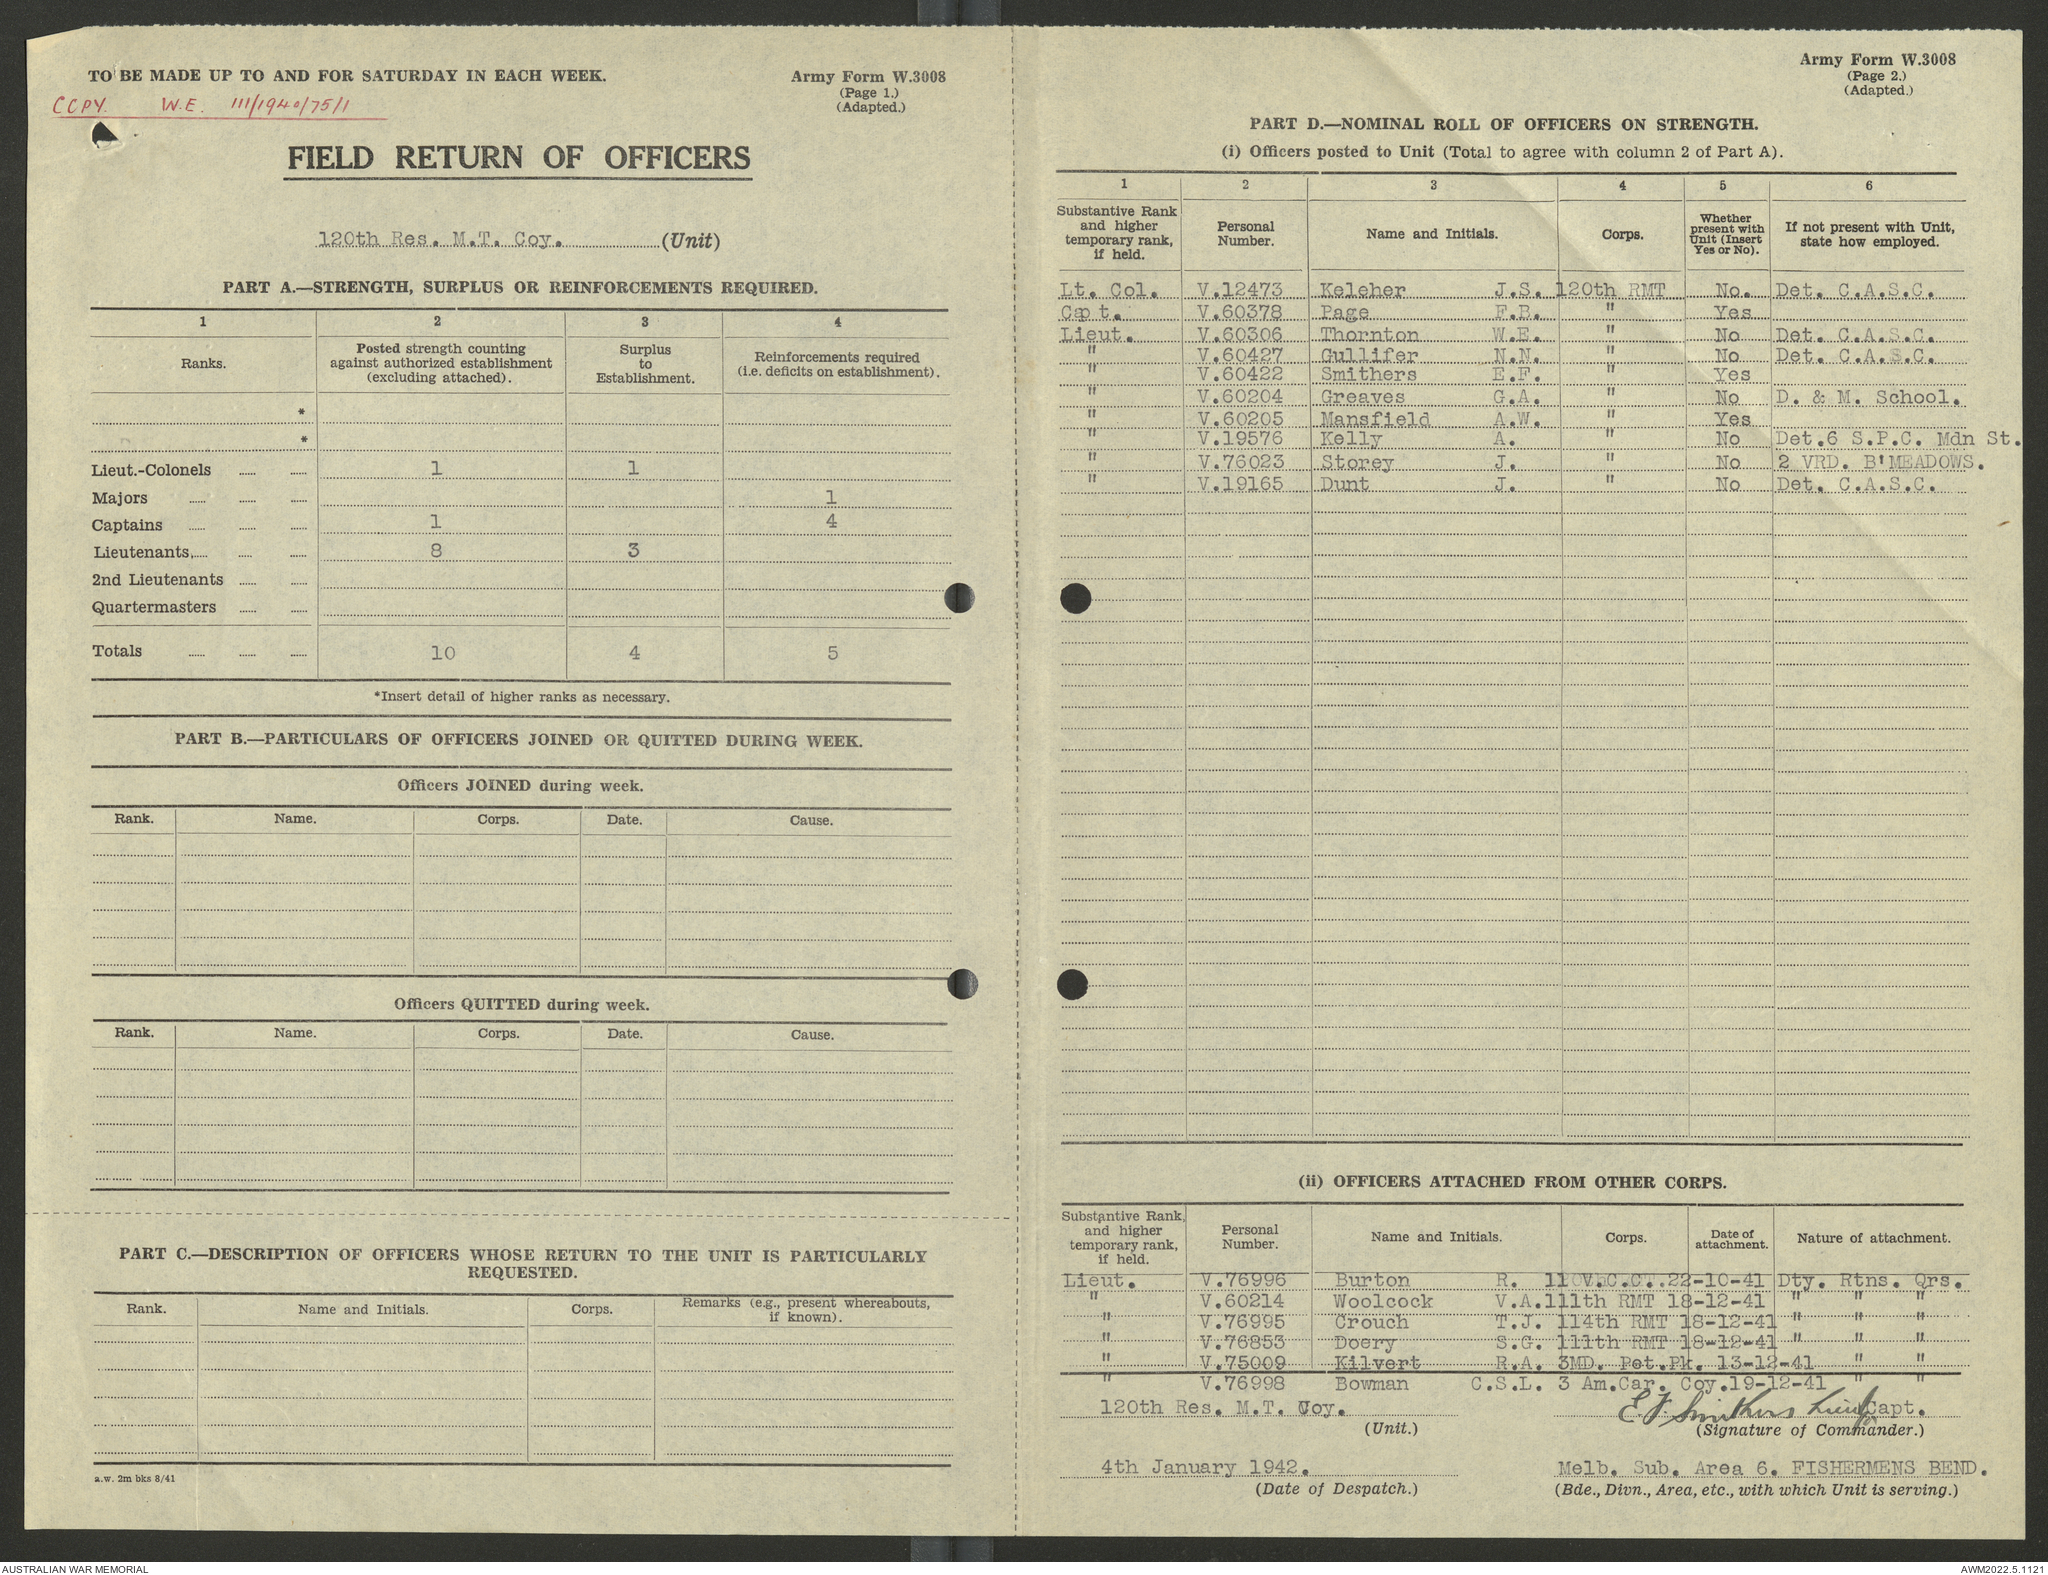 TO BE MADE UP TO AND FOR SATURDAY IN EACH WEEK.
Army Form W.3008
(Page 1.)
(Adapted.)
COPY. W.E. 111/1940/75/1
FIELD RETURN OF OFFICERS
120th Res. M.T. Coy. (Unit)
PART A.—STRENGTH, SURPLUS OR REINFORCEMENTS REQUIRED.
1 2 3 4
Ranks. Posted strength counting against authorized establishment (excluding attached). Surplus to Establishment. Reinforcements required (i.e. deficits on establishment).
*
*
Lieut.-Colonels 1 1
Majors 1
Captains 1 4
Lieutenants 8 3
2nd Lieutenants
Quartermasters
Totals 10 4 5
*Insert detail of higher ranks as necessary.
PART B.—PARTICULARS OF OFFICERS JOINED OR QUITTED DURING WEEK.
Officers JOINED during week.
Rank. Name. Corps. Date. Cause.
Officers QUITTED during week.
Rank. Name. Corps. Date. Cause.
PART C.—DESCRIPTION OF OFFICERS WHOSE RETURN TO THE UNIT IS PARTICULARLY
REQUESTED.
Rank. Name and Initials. Corps. Remarks (e.g., present whereabouts, if known).
a.w. 2m bks 8/41
Army Form W.3008
(Page 2.)
(Adapted.)
PART D.—NOMINAL ROLL OF OFFICERS ON STRENGTH.
(i) Officers posted to Unit (Total to agree with column 2 of Part A).
1 2 3 4 5 6
Substantive Rank and higher temporary rank, if held. Personal Number. Name and Initials. Corps. Whether present with Unit (Insert Yes or No). If not present with Unit, state how employed.
Lt. Col. V.12473 Keleher J.S. 120th RMT No. Det. C.A.S.C.
Capt. V.60378 Page F.B. " Yes
Lieut. V.60306 Thornton W.E. " No Det. C.A.S.C.
" V.60427 Gullifer N.N. " No Det. C.A.S.C.
" V.60422 Smithers E.F. " Yes
" V.60204 Greaves G.A. " No D. & M. School.
" V.60205 Mansfield A.W. " Yes
" V.19576 Kelly A. " No Det.6 S.P.C. Mdn St.
" V.76023 Storey J. " No 2 VRD. B'MEADOWS.
" V.19165 Dunt J. " No Det. C.A.S.C.
(ii) OFFICERS ATTACHED FROM OTHER CORPS.
Substantive Rank, and higher temporary rank, if held. Personal Number. Name and Initials. Corps. Date of attachment. Nature of attachment.
Lieut. V.76996 Burton R. 22-10-41 Dty. Rtns. Qrs.
" V.60214 Woolcock V.A. 111th RMT 18-12-41 " " "
" V.76995 Crouch T.J. 114th RMT 18-12-41 " " "
" V.76853 Doery S.G. 111th RMT 18-12-41 " " "
" V.75009 Kilvert R.A. 3MD. Pet.Pk. 13-12-41 " "
" V.76998 Bowman C.S.L. 3 Am.Car. Coy.19-12-41 " "
120th Res. M.T. Coy. E F Smithers Lieut for Capt.
(Unit.) (Signature of Commander.)
4th January 1942. Melb. Sub. Area 6. FISHERMENS BEND.
(Date of Despatch.) (Bde., Divn., Area, etc., with which Unit is serving.)
AUSTRALIAN WAR MEMORIAL AWM2022.5.1121